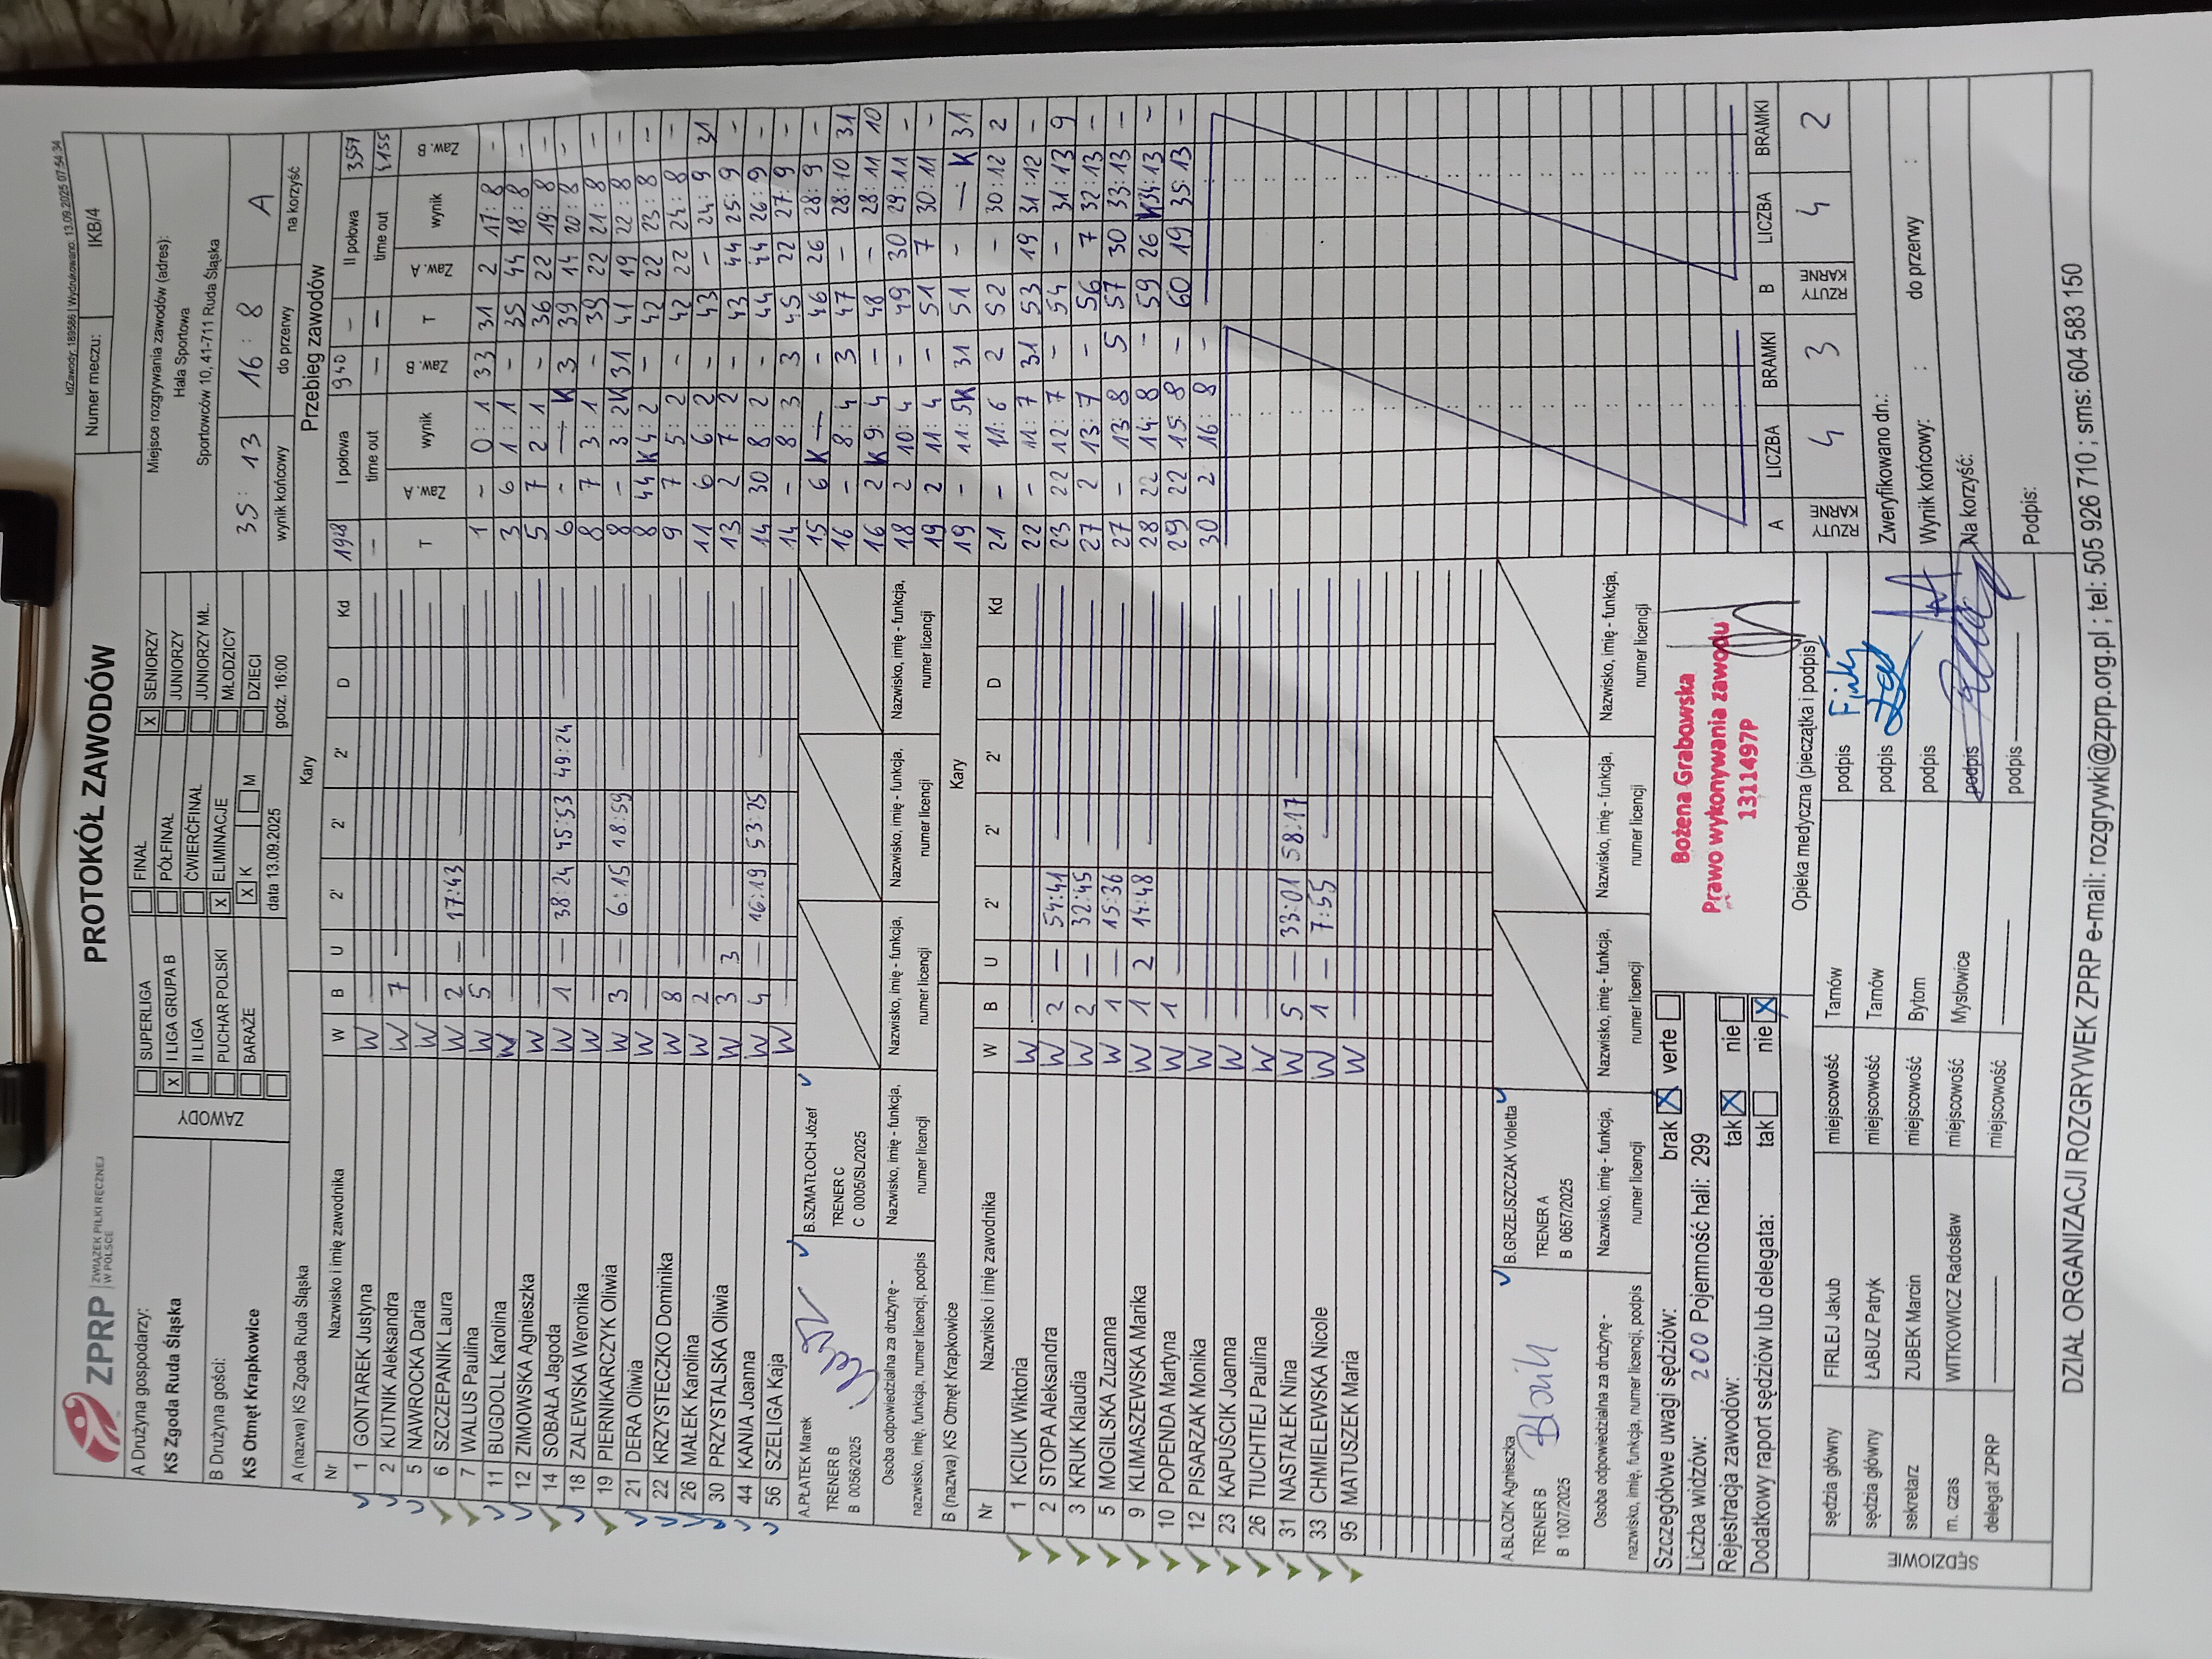 IdZawody: 189586 | Wydrukowano: 13.09.2025 07:54:34
ZPRP ZWIĄZEK PIŁKI RĘCZNEJ W POLSCE
PROTOKÓŁ ZAWODÓW
Numer meczu: IKB/4
A Drużyna gospodarzy:
KS Zgoda Ruda Śląska
B Drużyna gości:
KS Otmęt Krapkowice
ZAWODY
SUPERLIGA
X I LIGA GRUPA B
II LIGA
PUCHAR POLSKI
BARAŻE
FINAŁ
PÓŁFINAŁ
ĆWIERĆFINAŁ
X ELIMINACJE
X K M
X SENIORZY
JUNIORZY
JUNIORZY MŁ.
MŁODZICY
DZIECI
data 13.09.2025 godz. 16:00
Miejsce rozgrywania zawodów (adres):
Hala Sportowa
Sportowców 10, 41-711 Ruda Śląska
35 : 13 16 : 8 A
wynik końcowy do przerwy na korzyść
A (nazwa) KS Zgoda Ruda Śląska Kary
Nr Nazwisko i imię zawodnika W B U 2' 2' 2' D Kd
1 GONTAREK Justyna W
2 KUTNIK Aleksandra W 7
5 NAWROCKA Daria W
6 SZCZEPANIK Laura W 2 — 17:43
7 WALUS Paulina W 5
11 BUGDOLL Karolina W
12 ZIMOWSKA Agnieszka W
14 SOBAŁA Jagoda W 1 — 38:24 45:53 49:24
18 ZALEWSKA Weronika W
19 PIERNIKARCZYK Oliwia W 3 — 6:15 18:59
21 DERA Oliwia W
22 KRZYSTECZKO Dominika W 8
26 MAŁEK Karolina W 2
30 PRZYSTALSKA Oliwia W 3 3
44 KANIA Joanna W 4 — 16:19 53:25
56 SZELIGA Kaja W
A.PŁATEK Marek
TRENER B
B 0056/2025
B.SZMATŁOCH Józef
TRENER C
C 0005/SL/2025
Osoba odpowiedzialna za drużynę -
nazwisko, imię, funkcja, numer licencji, podpis
Nazwisko, imię - funkcja, numer licencji
Nazwisko, imię - funkcja, numer licencji
Nazwisko, imię - funkcja, numer licencji
Nazwisko, imię - funkcja, numer licencji
B (nazwa) KS Otmęt Krapkowice Kary
Nr Nazwisko i imię zawodnika W B U 2' 2' 2' D Kd
1 KCIUK Wiktoria W
2 STOPA Aleksandra W 2 — 54:41
3 KRUK Klaudia W 2 — 32:45
5 MOGILSKA Zuzanna W 1 — 15:36
9 KLIMASZEWSKA Marika W 1 2 14:48
10 POPENDA Martyna W 1
12 PISARZAK Monika W
23 KAPUŚCIK Joanna W
26 TIUCHTIEJ Paulina W
31 NASTAŁEK Nina W 5 — 33:01 58:17
33 CHMIELEWSKA Nicole W 1 — 7:55
95 MATUSZEK Maria W
A.BLOZIK Agnieszka
TRENER B
B 1007/2025
Blozik
B.GRZEJSZCZAK Violetta
TRENER A
B 0657/2025
Osoba odpowiedzialna za drużynę -
nazwisko, imię, funkcja, numer licencji, podpis
Nazwisko, imię - funkcja, numer licencji
Nazwisko, imię - funkcja, numer licencji
Nazwisko, imię - funkcja, numer licencji
Nazwisko, imię - funkcja, numer licencji
Szczegółowe uwagi sędziów: brak X verte
Liczba widzów: 200 Pojemność hali: 299
Rejestracja zawodów: tak X nie
Dodatkowy raport sędziów lub delegata: tak nie X
Bożena Grabowska
Prawo wykonywania zawodu
1311497P
Opieka medyczna (pieczątka i podpis)
SĘDZIOWIE
sędzia główny FIRLEJ Jakub miejscowość Tarnów podpis
sędzia główny ŁABUZ Patryk miejscowość Tarnów podpis
sekretarz ZUBEK Marcin miejscowość Bytom podpis
m. czas WITKOWICZ Radosław miejscowość Mysłowice podpis
delegat ZPRP miejscowość podpis
Przebieg zawodów
1928 I połowa 940 — II połowa 3557
— time out — — time out 5155
T Zaw. A wynik Zaw. B T Zaw. A wynik Zaw. B
1 - 0 : 1 33 31 2 17 : 8 -
3 6 1 : 1 - 35 44 18 : 8 -
5 7 2 : 1 - 36 22 19 : 8 -
6 - — K 3 39 14 20 : 8 -
8 7 3 : 1 - 39 22 21 : 8 -
8 - 3 : 2 K 31 41 19 22 : 8 -
8 44 K 4 : 2 - 42 22 23 : 8 -
9 7 5 : 2 - 42 22 24 : 8 -
11 6 6 : 2 - 43 - 24 : 9 31
13 2 7 : 2 - 43 44 25 : 9 -
14 30 8 : 2 - 44 44 26 : 9 -
14 - 8 : 3 3 45 22 27 : 9 -
15 6 K — - 46 26 28 : 9 -
16 - 8 : 4 3 47 - 28 : 10 31
16 2 K 9 : 4 - 48 - 28 : 11 10
18 2 10 : 4 - 49 30 29 : 11 -
19 2 11 : 4 - 51 7 30 : 11 -
19 - 11 : 5 K 31 51 - — K 31
21 - 11 : 6 2 52 - 30 : 12 2
22 - 11 : 7 31 53 19 31 : 12 -
23 22 12 : 7 - 54 - 31 : 13 9
27 2 13 : 7 - 56 7 32 : 13 -
27 - 13 : 8 5 57 30 33 : 13 -
28 22 14 : 8 - 59 26 K 34 : 13 -
29 22 15 : 8 - 60 19 35 : 13 -
30 2 16 : 8 -
A LICZBA BRAMKI B LICZBA BRAMKI
RZUTY KARNE 4 3 RZUTY KARNE 4 2
Zweryfikowano dn.:
Wynik końcowy: : do przerwy :
Na korzyść:
Podpis:
DZIAŁ ORGANIZACJI ROZGRYWEK ZPRP e-mail: rozgrywki@zprp.org.pl ; tel: 505 926 710 ; sms: 604 583 150